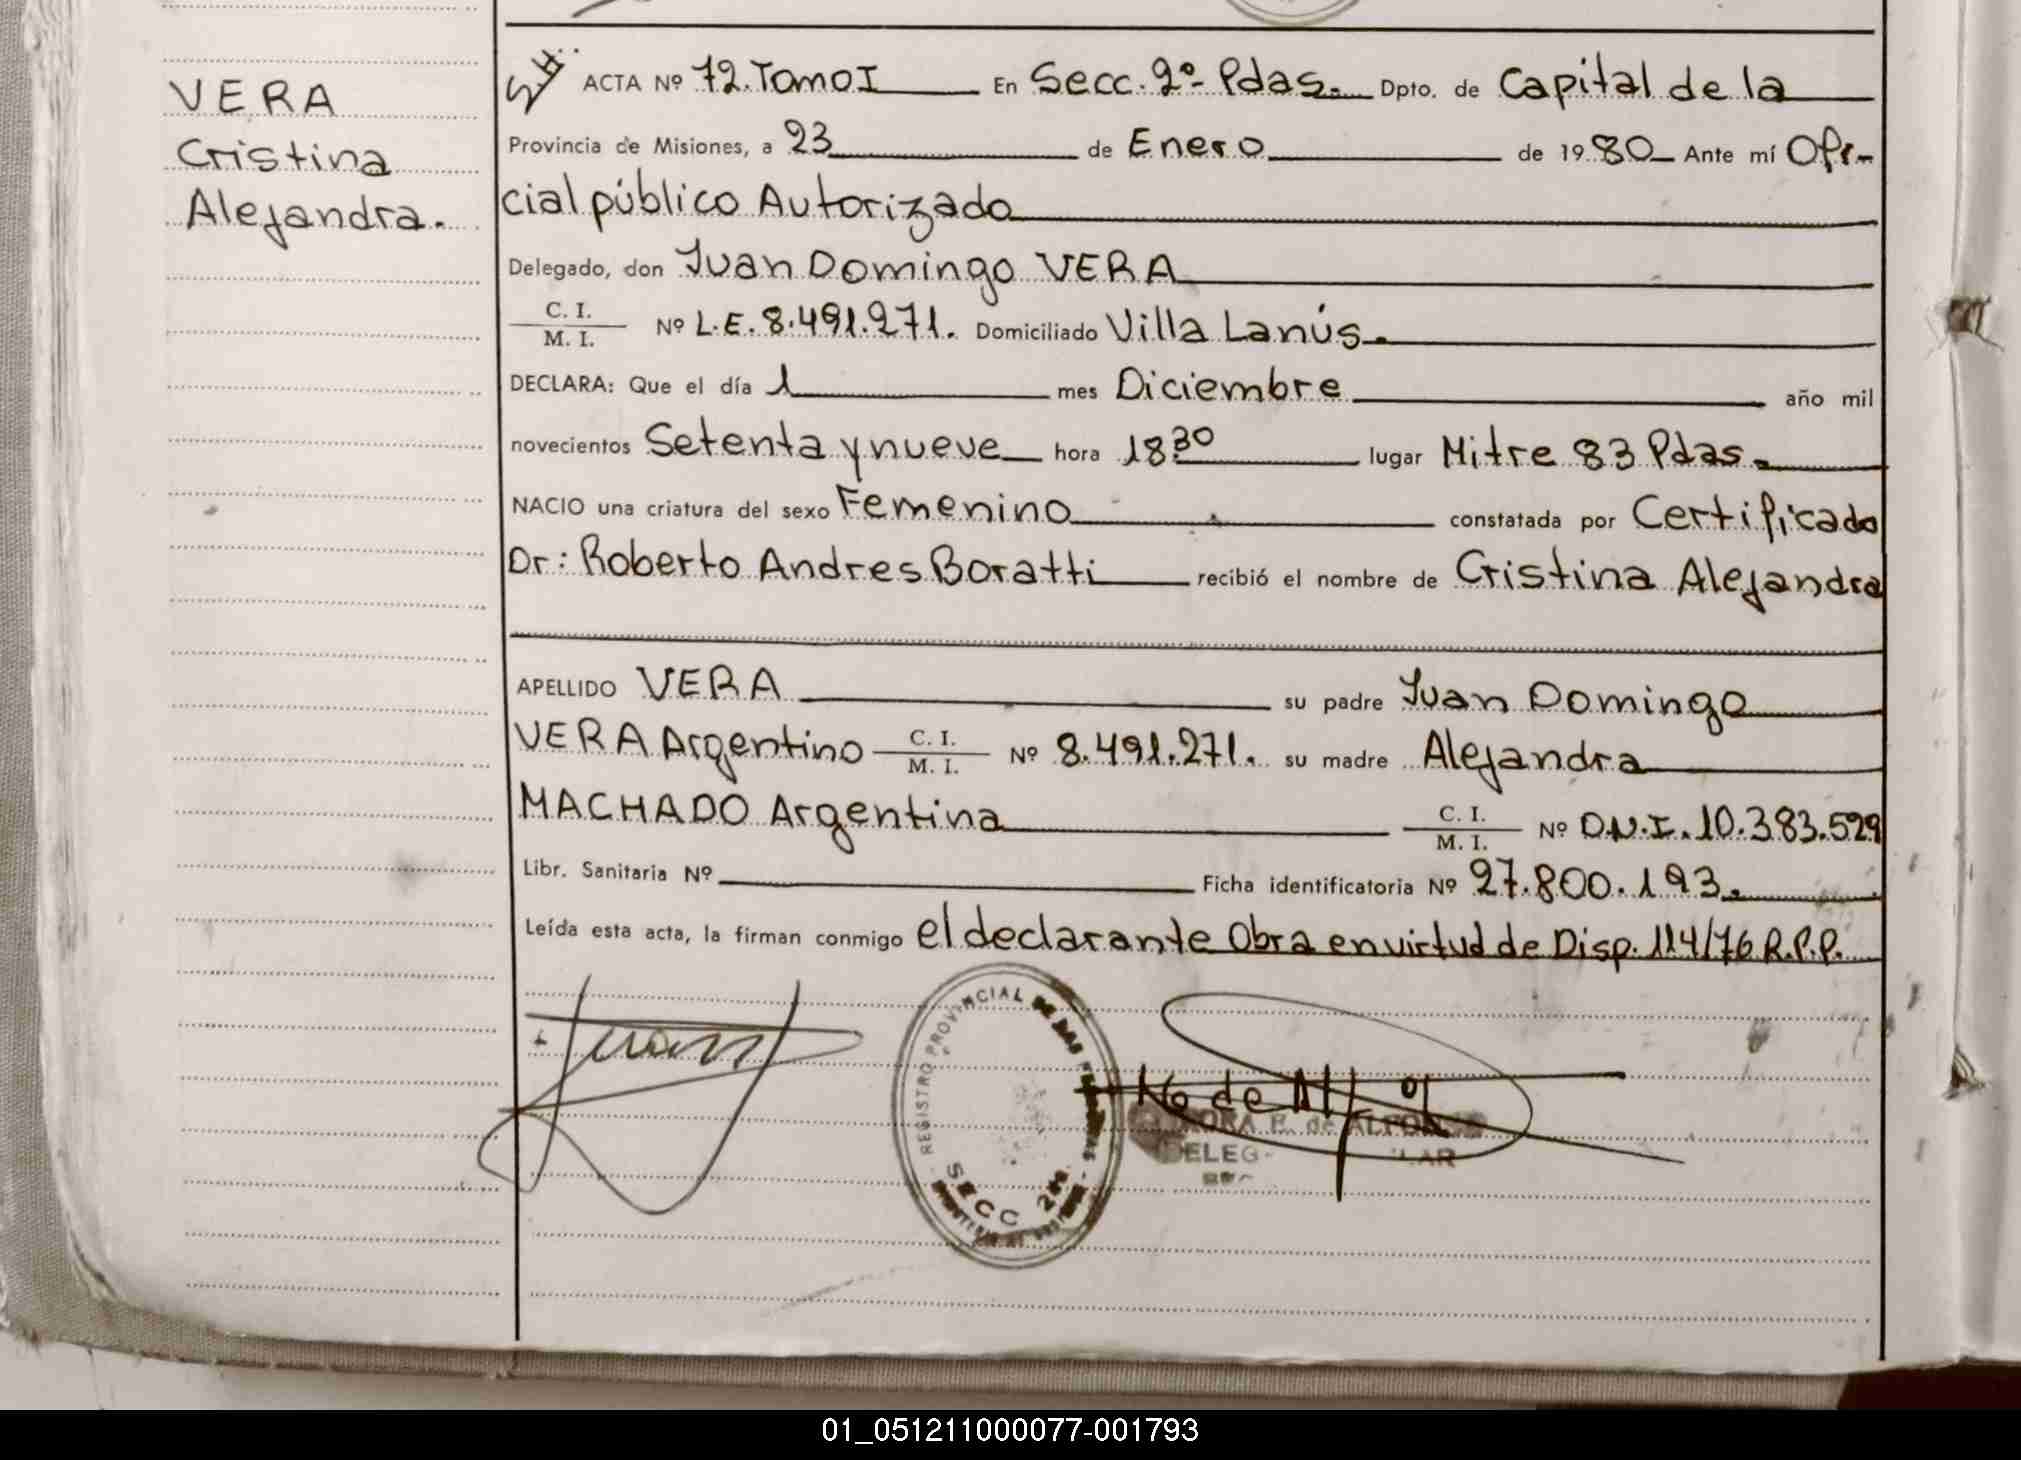 VERA
Cristina
Alejandra.
ACTA Nº 72. Tomo I En Secc. 2º Pdas. Dpto. de Capital de la
Provincia de Misiones, a 23 de Enero de 1980 Ante mí Ofi-
cial público Autorizado
Delegado, don Juan Domingo VERA
C. I.
M. I. Nº L.E. 8.491.271. Domiciliado Villa Lanús.
DECLARA: Que el día 1 mes Diciembre año mil
novecientos Setenta y nueve hora 18.30 lugar Mitre 83 Pdas.
NACIO una criatura del sexo Femenino constatada por Certificado
Dr: Roberto Andres Boratti recibió el nombre de Cristina Alejandra
APELLIDO VERA su padre Juan Domingo
VERA Argentino C. I. M. I. Nº 8.491.271. su madre Alejandra
MACHADO Argentina C. I. M. I. Nº D.N.I. 10.383.529
Libr. Sanitaria Nº Ficha identificatoria Nº 27.800.193.
Leída esta acta, la firman conmigo el declarante Obra en virtud de Disp. 114/76 R.P.P.
REGISTRO PROVINCIAL DE LAS
SECC 2da
01_051211000077-001793